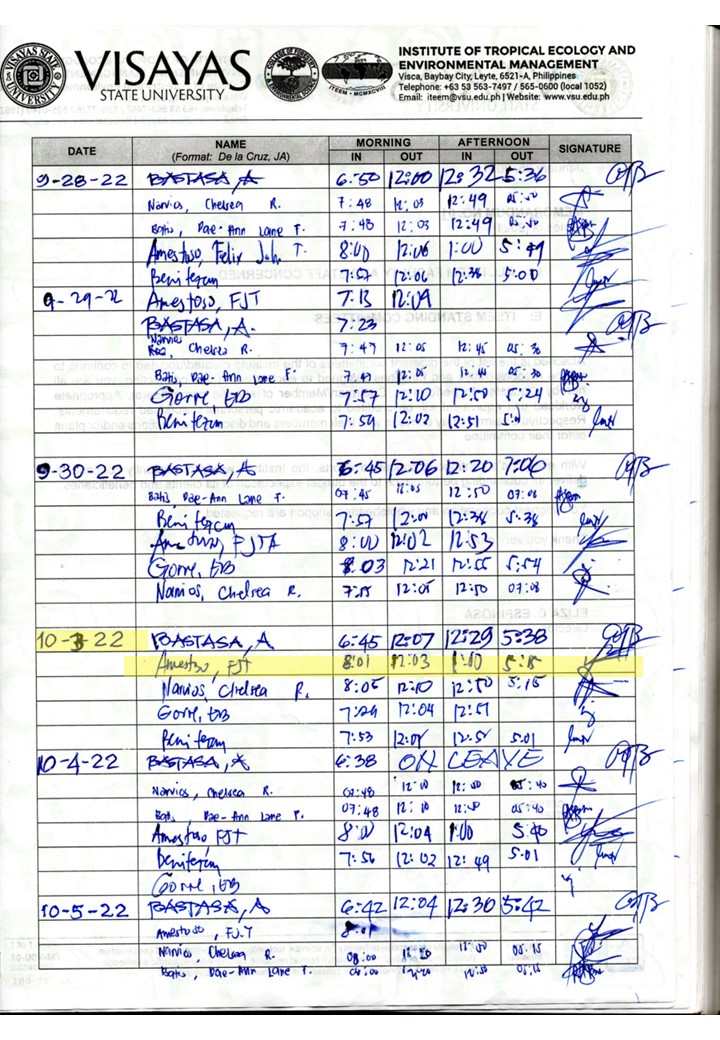 VISAYAS
STATE UNIVERSITY
INSTITUTE OF TROPICAL ECOLOGY AND
ENVIRONMENTAL MANAGEMENT
Visca, Baybay City, Leyte, 6521-A, Philippines
Telephone: +63 53 563-7497 / 565-0600 (local 1052)
Email: iteem@vsu.edu.ph | Website: www.vsu.edu.ph
DATE NAME (Format: De la Cruz, JA) MORNING IN OUT AFTERNOON IN OUT SIGNATURE
9-28-22 BASTASA, A 6:50 12:00 12:32 5:36
Narvios, Chelsea R. 7:48 12:03 12:49 05:40
Batis, Dae-Ann Lane T. 7:48 12:03 12:49
Amestoso, Felix John T. 8:00 12:06 1:00 5:49
Benitezm 7:57 12:06 12:38 5:00
9-29-22 Amestoso, FJT 7:13 12:09
BASTASA, A. 7:23
Narvios, Chelsea R. 7:47 12:05 12:45 05:30
Batis, Dae-Ann Lane T. 7:47 12:05 12:45 05:30
Gorre, EB 7:57 12:10 12:50 5:24
Benitezm 7:59 12:02 12:51
9-30-22 BASTASA, A 6:45 12:06 12:20 7:06
Batis, Dae-Ann Lane T. 07:45 12:05 12:50 07:08
Benitezm 7:57 12:01 12:38 5:38
8:00 12:02 12:53
Gorre, EB 8:03 12:21 12:55 5:54
Narvios, Chelsea R. 7:55 12:05 12:50 07:08
10-3-22 BASTASA, A 6:45 12:07 12:29 5:38
Amestoso, FJT 8:01 12:03 1:00 5:15
Narvios, Chelsea R. 8:05 12:10 12:50 5:15
Gorre, EB 7:29 12:04 12:51
Benitezm 7:53 12:01 12:51 5:01
10-4-22 BASTASA, A 6:38 ON LEAVE
Narvios, Chelsea R. 07:48 12:10 12:50 05:40
Batis, Dae-Ann Lane T. 07:48 12:10 12:50 05:40
Amestoso FJT 8:00 12:04 1:00 5:40
Benitezm 7:56 12:02 12:49 5:01
Gorre, EB
10-5-22 BASTASA, A 6:42 12:04 12:30 5:42
Amestoso, FJ.T 8:01
Narvios, Chelsea R. 08:00 12:20 12:50 05:15
Batis, Dae-Ann Lane T. 08:00 12:20 12:50 05:15